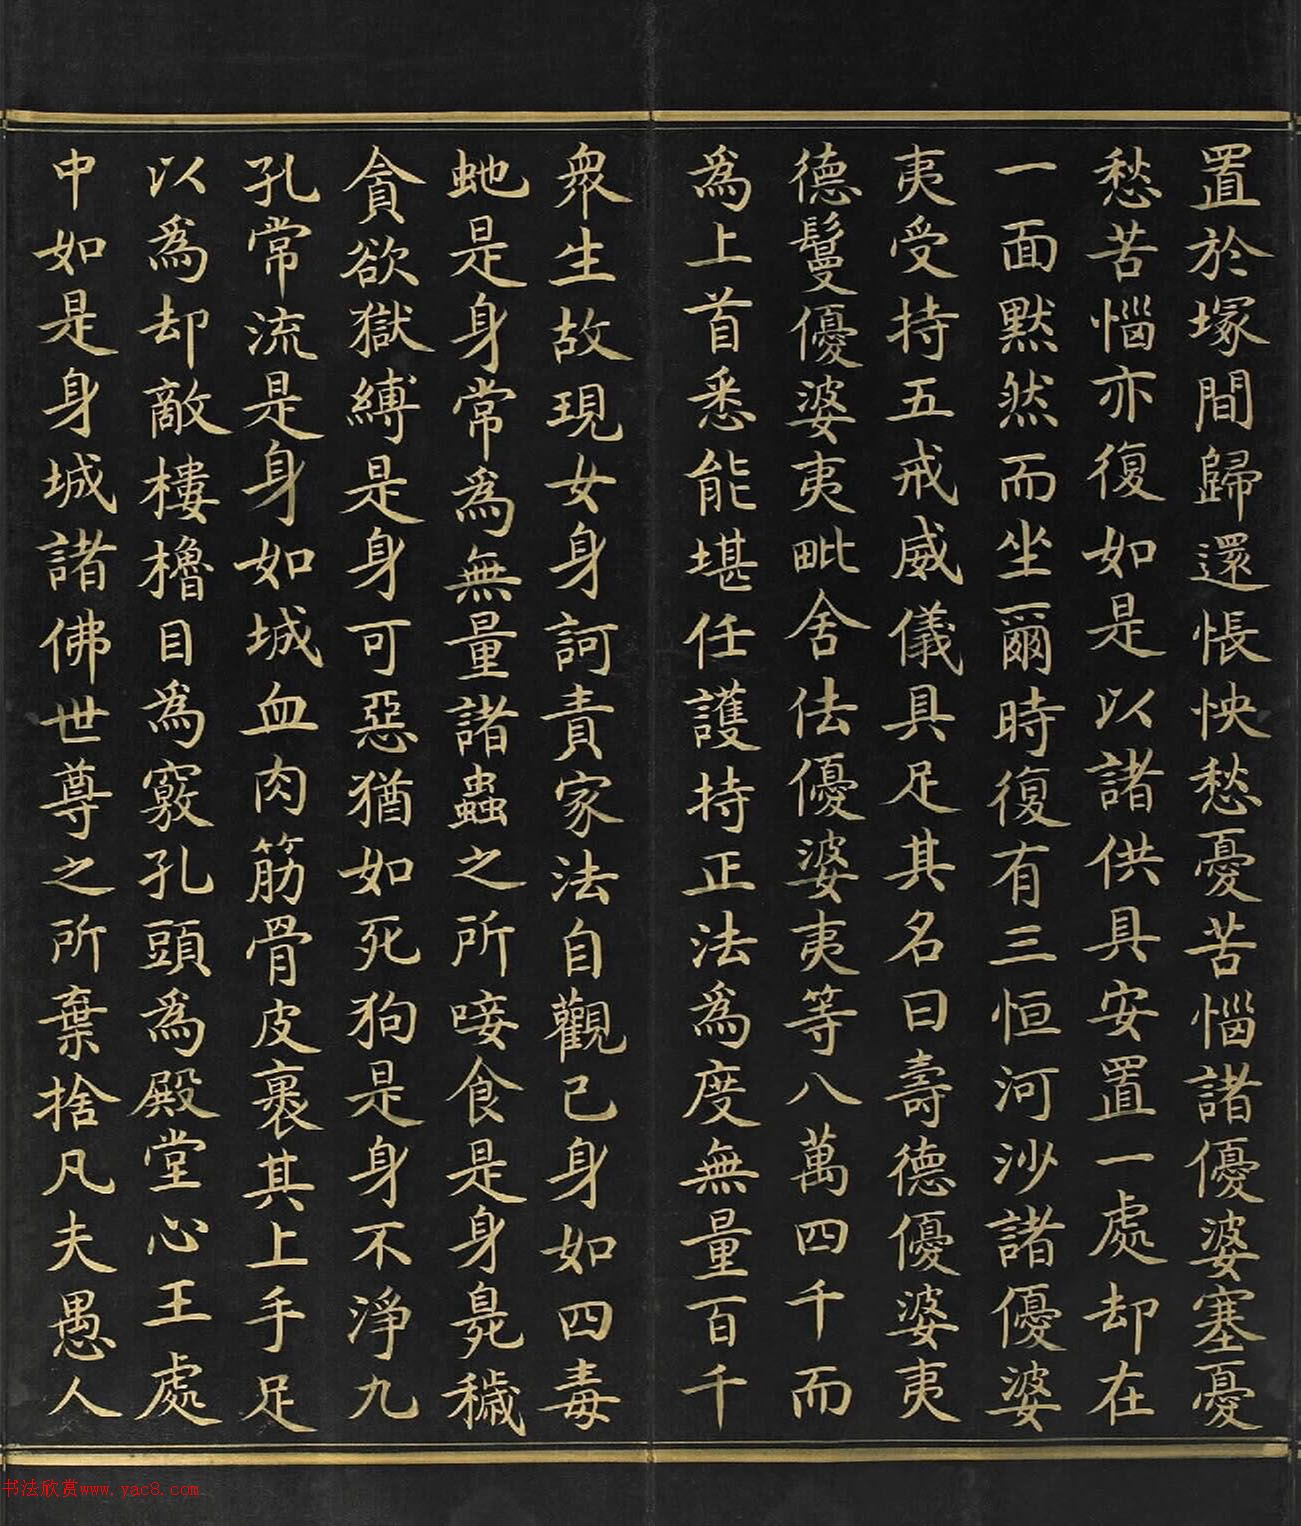 置於塚間歸還悵怏愁憂苦惱諸優婆塞憂
愁苦惱亦復如是以諸供具安置一處却在
一面默然而坐爾時復有三恒河沙諸優婆
夷受持五戒威儀具足其名曰壽德優婆夷
德鬘優婆夷毗舍佉優婆夷等八萬四千而
為上首悉能堪任護持正法為度無量百千
衆生故現女身訶責家法自觀己身如四毒
虵是身常為無量諸蟲之所唼食是身臭穢
貪欲獄縛是身可惡猶如死狗是身不淨九
孔常流是身如城血肉筋骨皮裹其上手足
以為却敵樓櫓目為竅孔頭為殿堂心王處
中如是身城諸佛世尊之所棄捨凡夫愚人
书法欣赏www.yac8.com